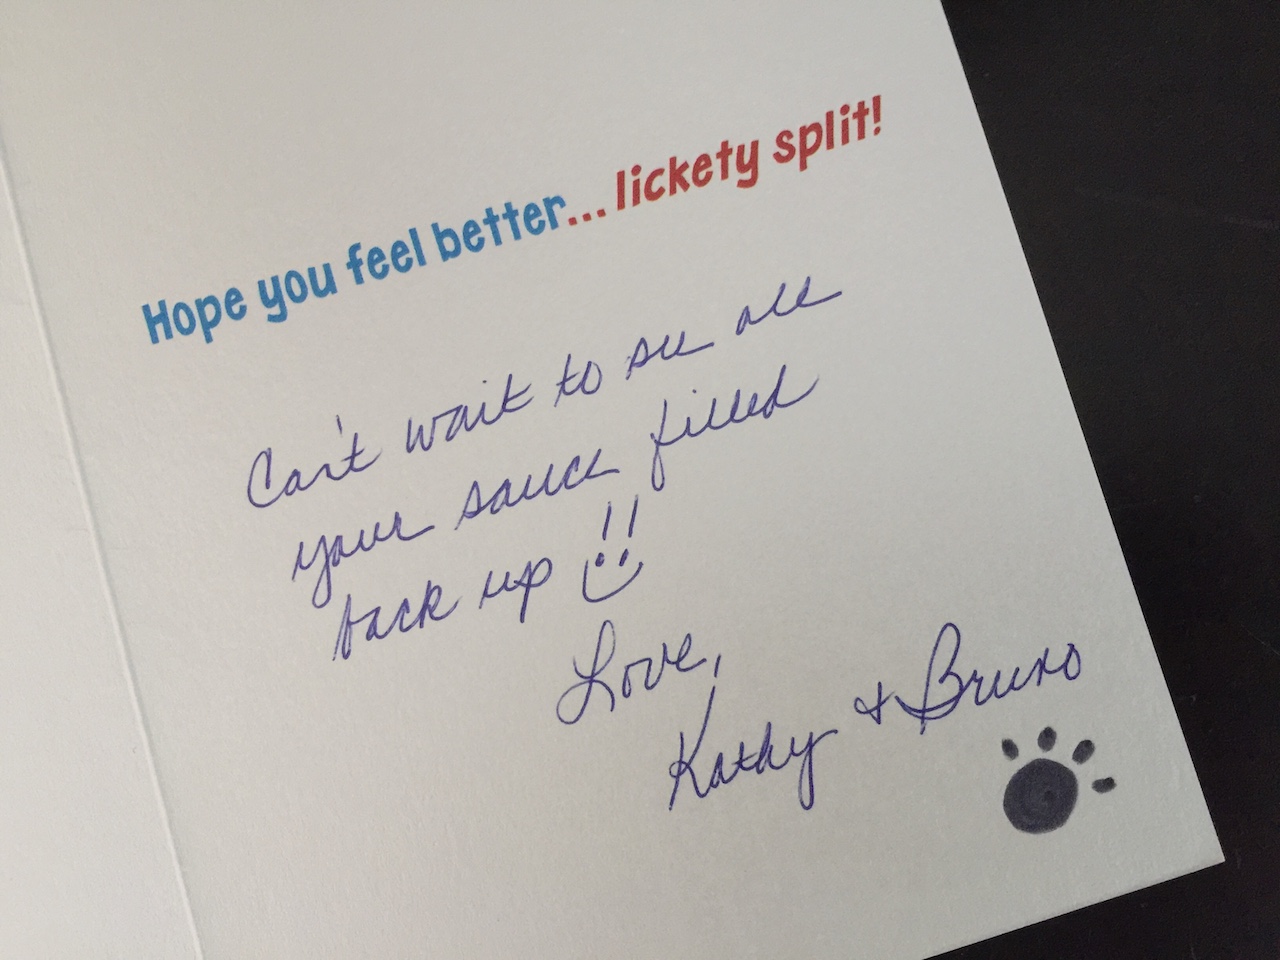 Hope you feel better... lickety split!
Can't wait to see all
your sauce filled
back up !!
Love,
Kathy & Bruno